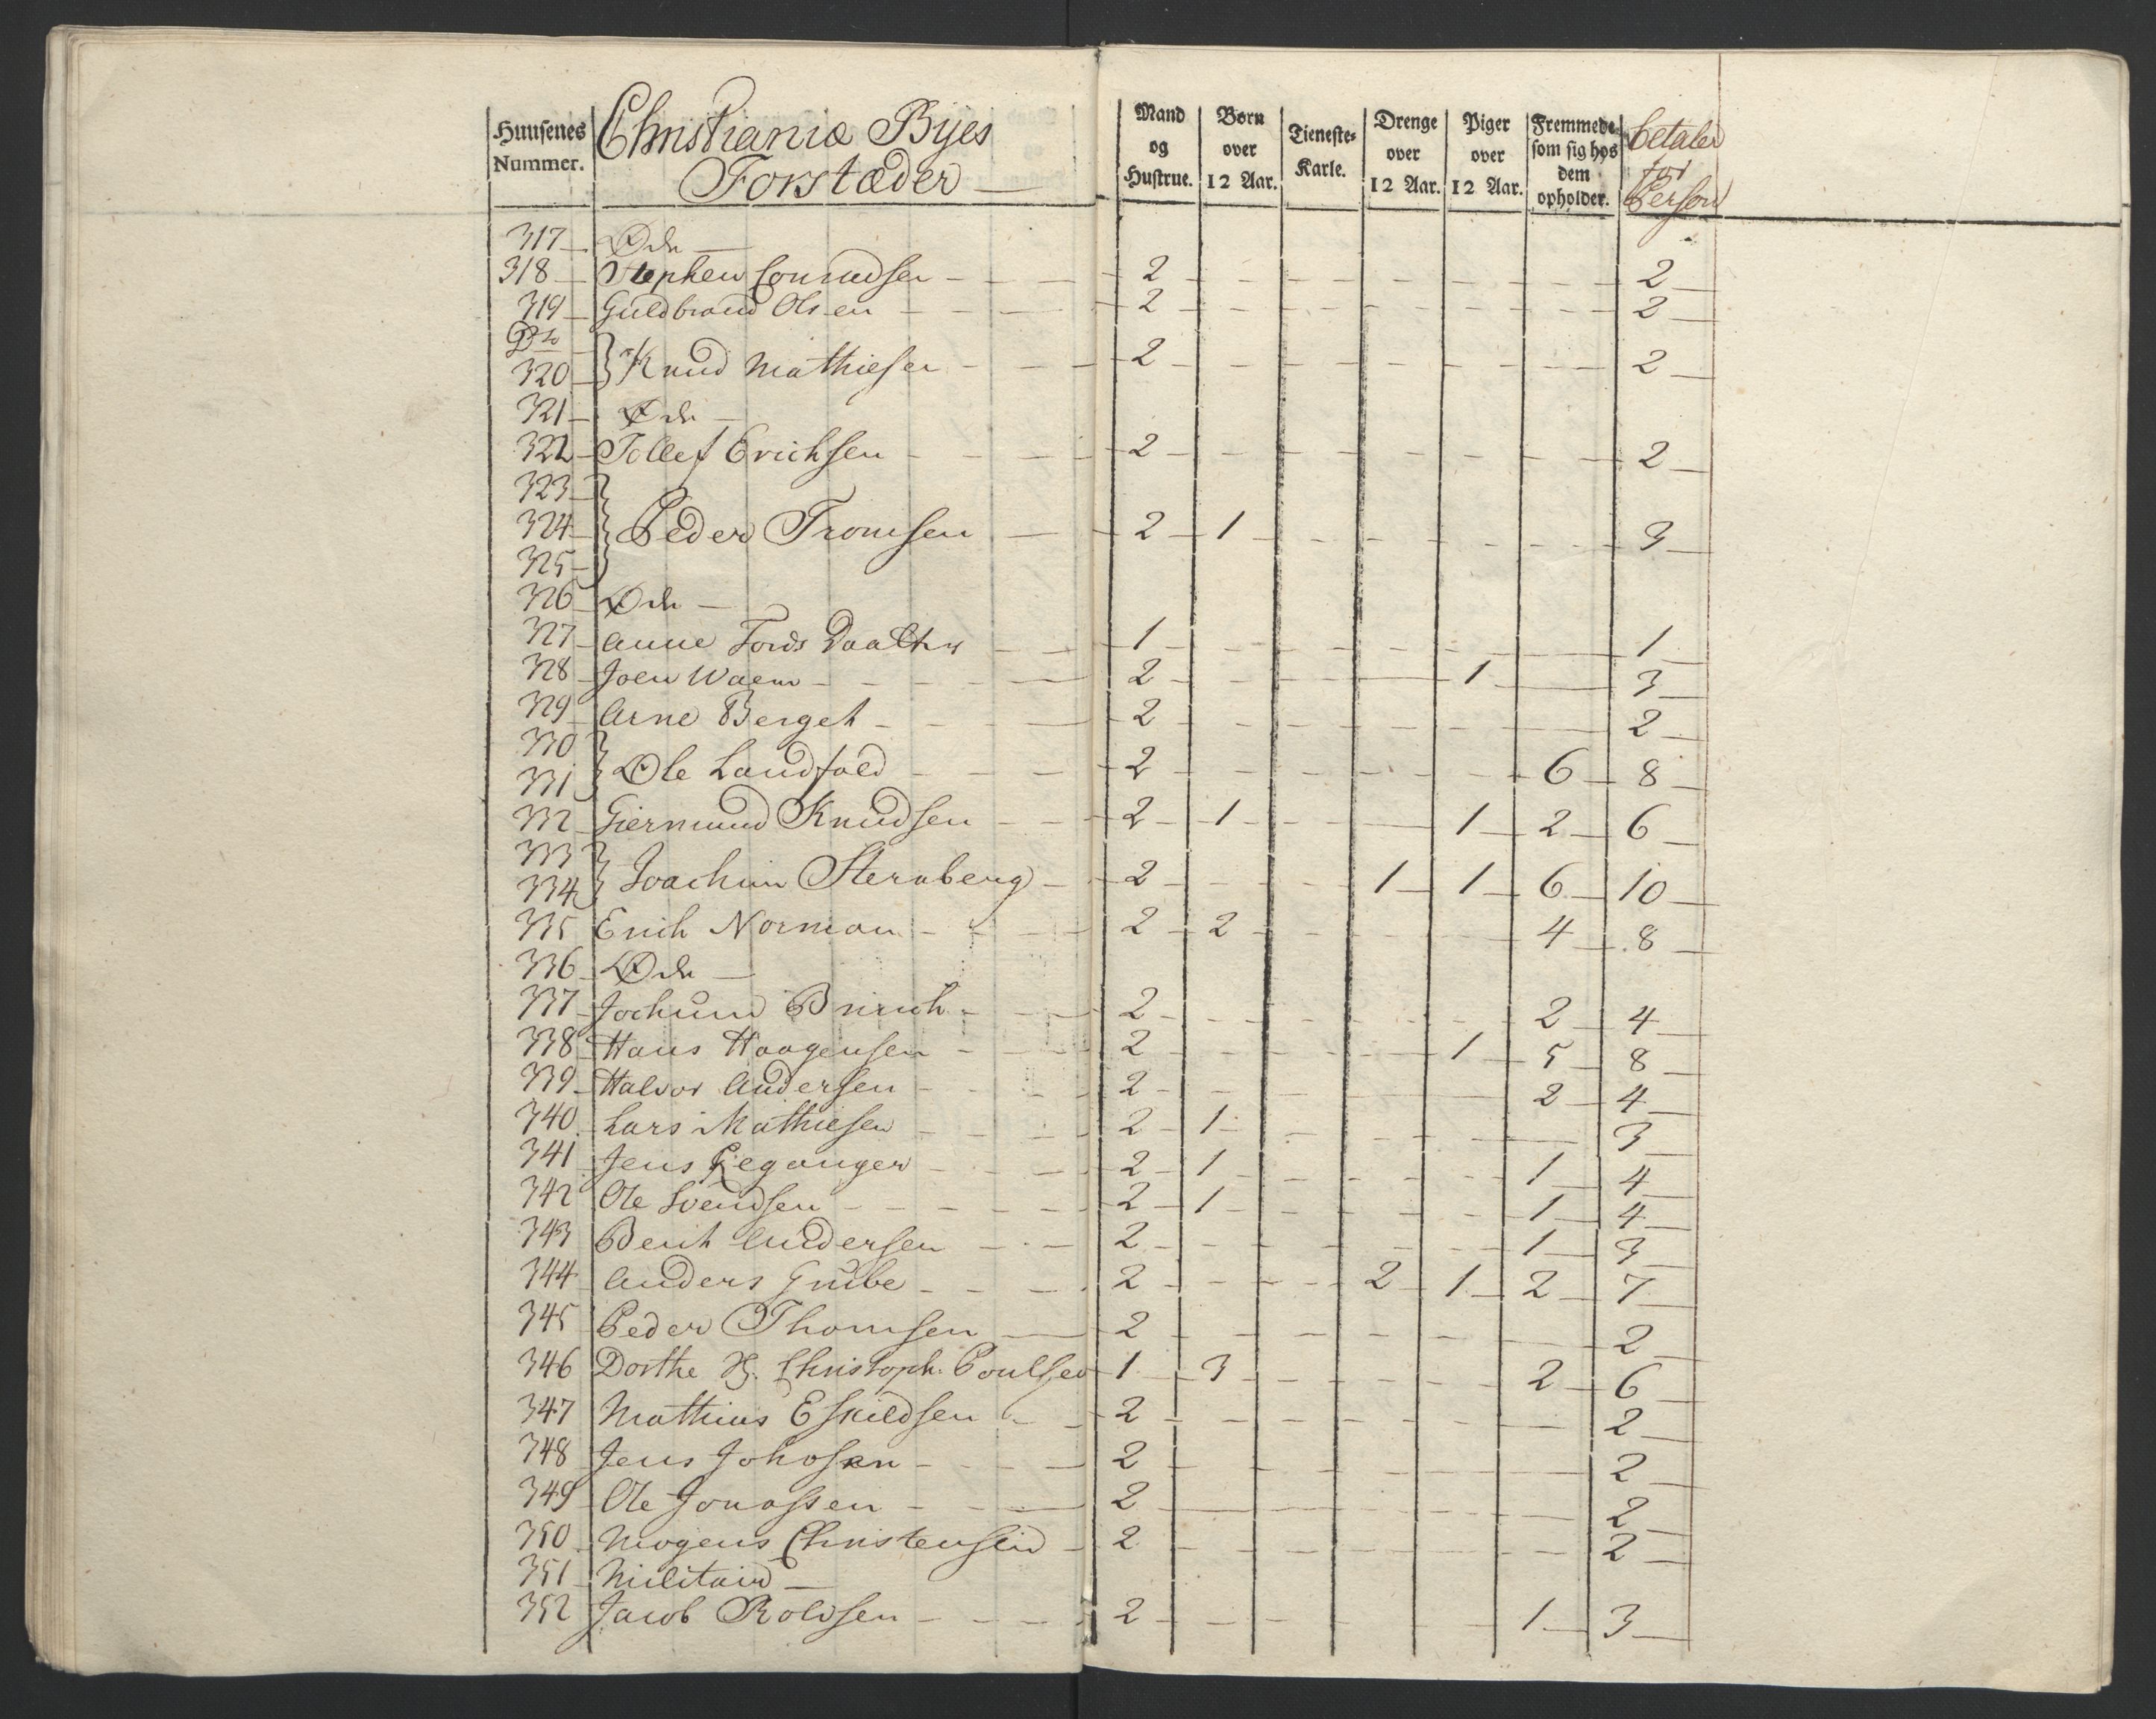 Huusenes Nummer. | Christianiæ Byes Forstæder | Mand og Hustrue. | Børn over 12 Aar. | Tieneste-Karle. | Drenge over 12 Aar. | Piger over 12 Aar. | Fremmede som sig hos dem opholder. | betaler for Persohn
317 Øde
318 Stephen Conradsen 2 2
319 Guldbrand Olsen 2 2
Do
320 Knud Mathiesen 2 2
321 Øde
322 Tollef Erichsen 2 2
323
324 Peder Tromsen 2 1 3
325
326 Øde
327 Anne Fords Daatter 1 1
328 Joen Waem 2 1 3
329 Arne Berget 2 2
330
331 Ole Landfald 2 6 8
332 Giermund Knudsen 2 1 1 2 6
333
334 Joachim Sternberg 2 1 1 6 10
335 Erich Norman 2 2 4 8
336 Øde
337 Jochum 2 2 4
338 Hans Haagensen 2 1 5 8
339 Halvor Andersen 2 2 4
340 Lars Mathiesen 2 1 3
341 Jens Leganger 2 1 1 4
342 Ole Svendsen 2 1 1 4
343 Bent Andersen 2 1 3
344 Anders Grube 2 2 1 2 7
345 Peder Thomsen 2 2
346 Dorthe Sl. Christoph. Poulsen 1 3 2 6
347 Mathias Eskildsen 2 2
348 Jens Johosen 2 2
349 Ole Jonassen 2 2
350 Mogens Christensen 2 2
351 Militair
352 Jacob Rolvsen 2 1 3